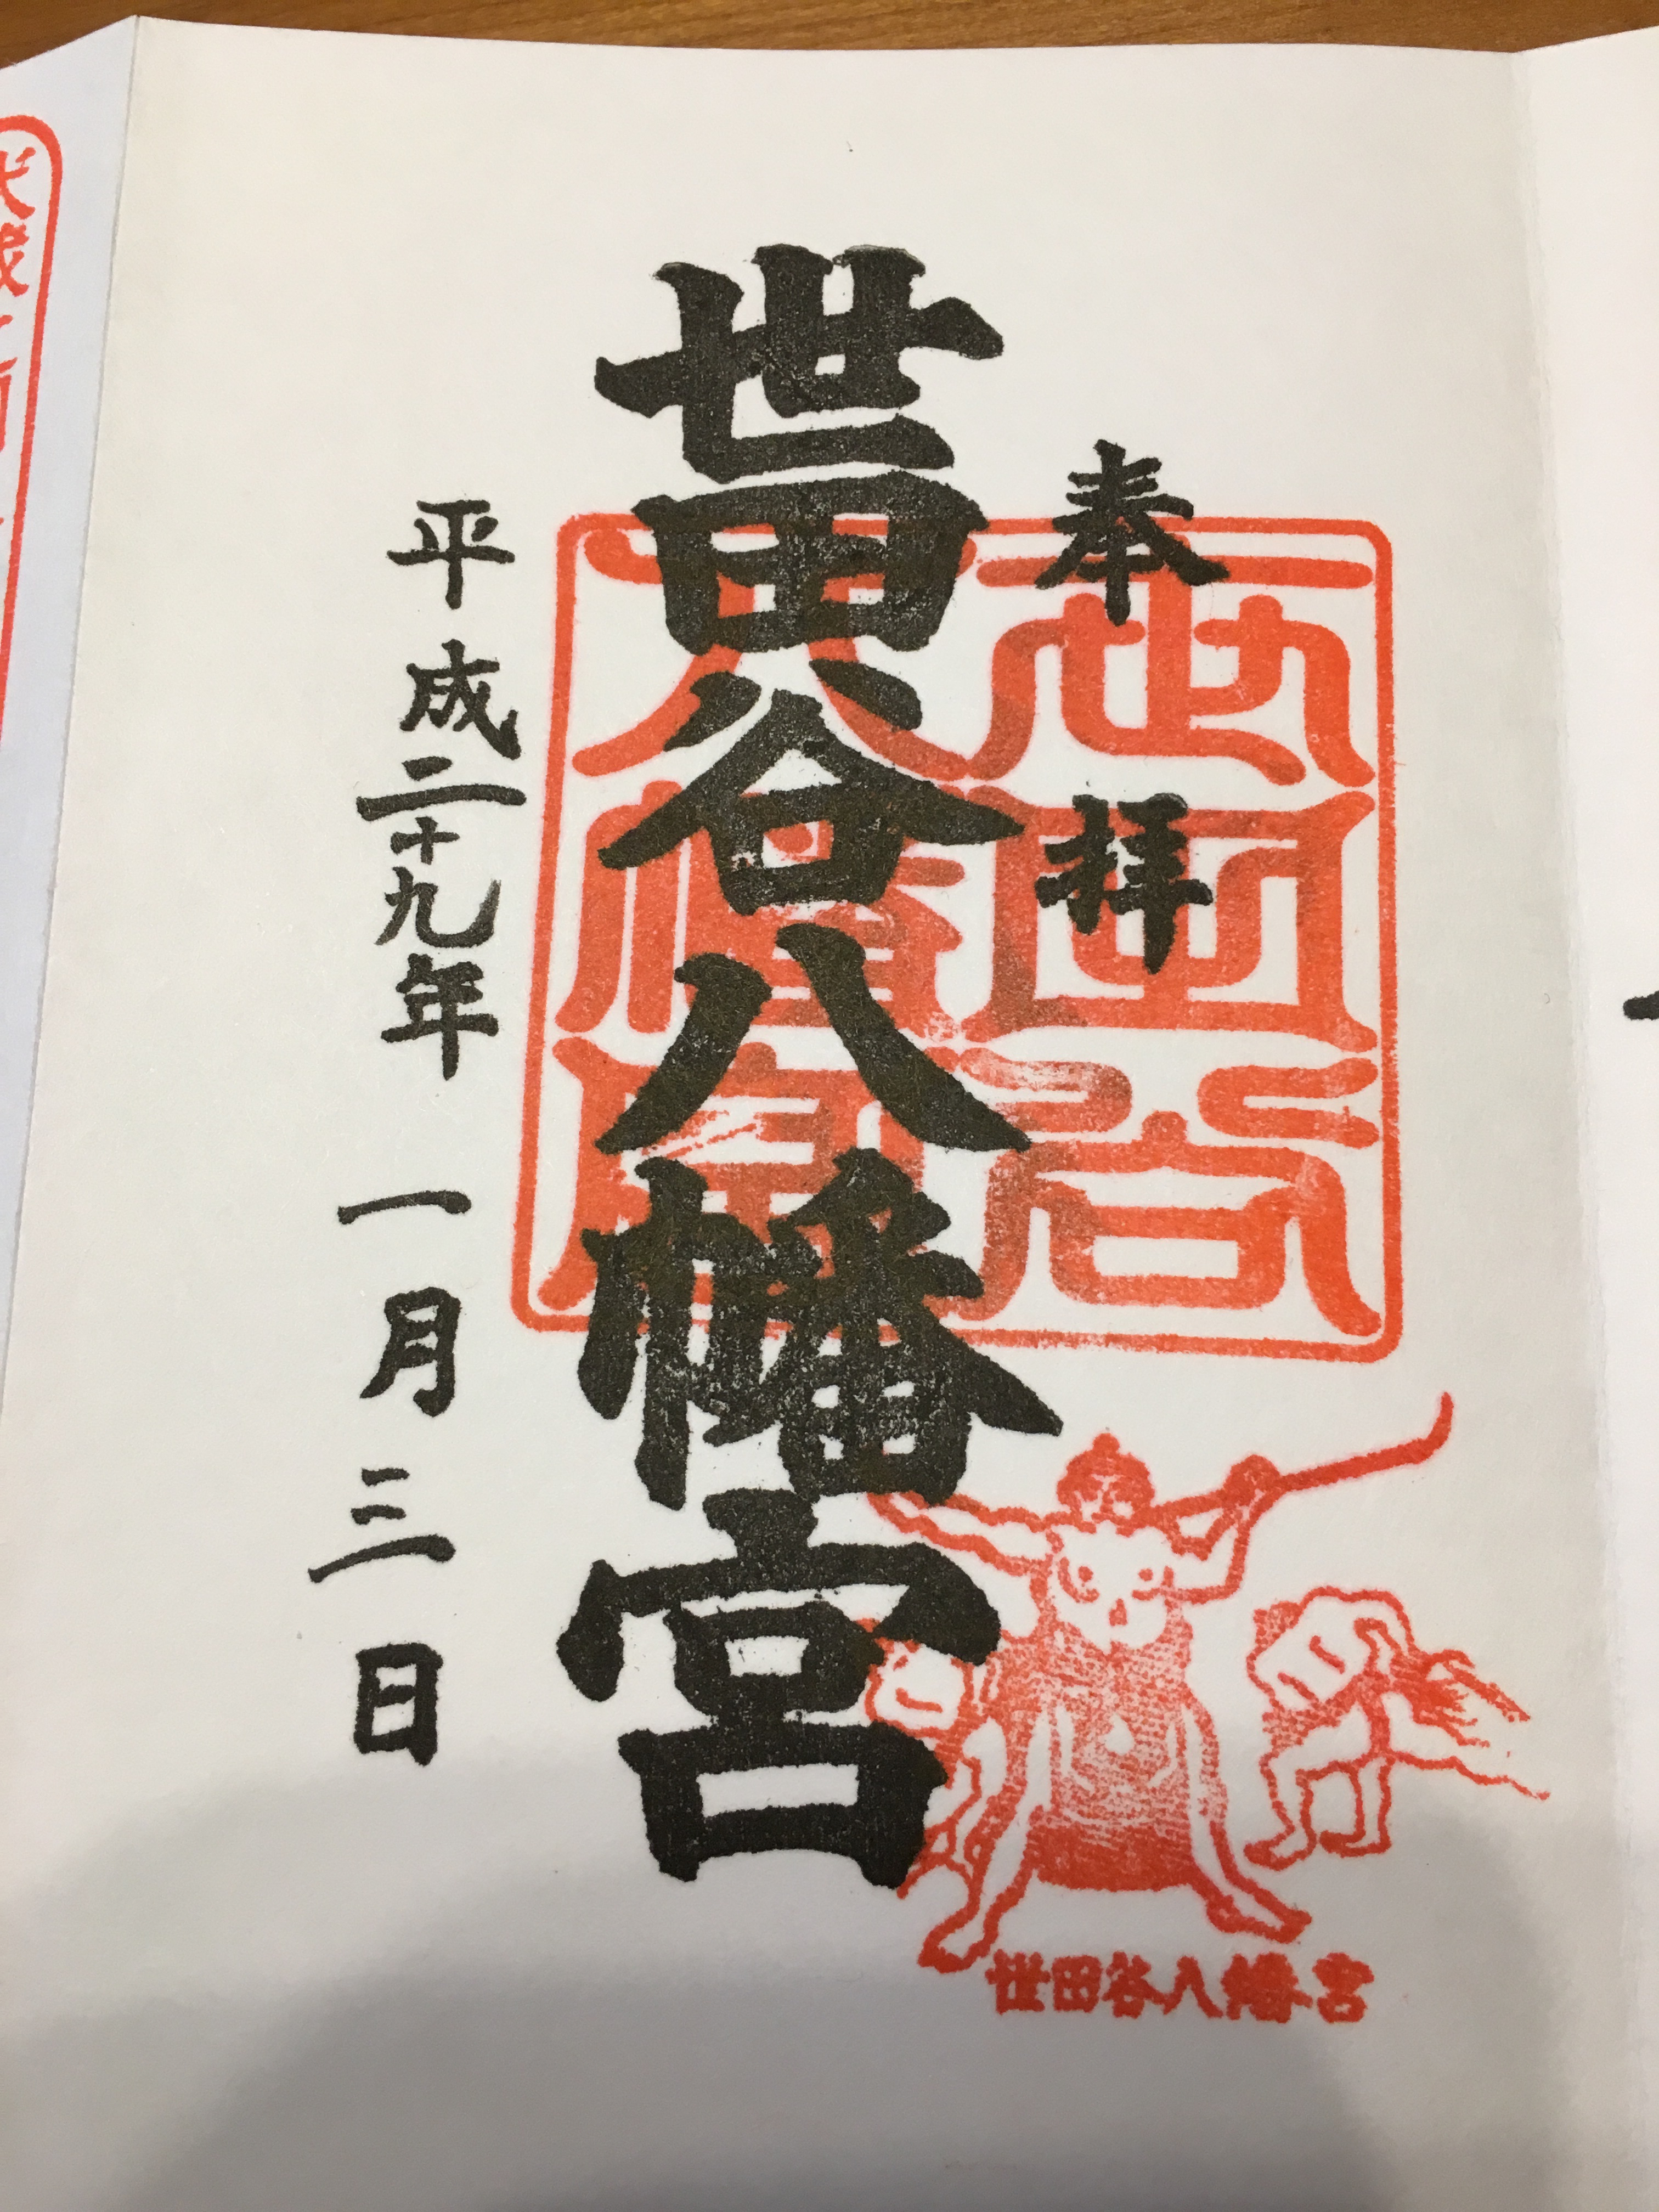 奉拝
世田谷八幡宮
平成二十九年一月三日
世田谷八幡宮
世田谷八幡宮